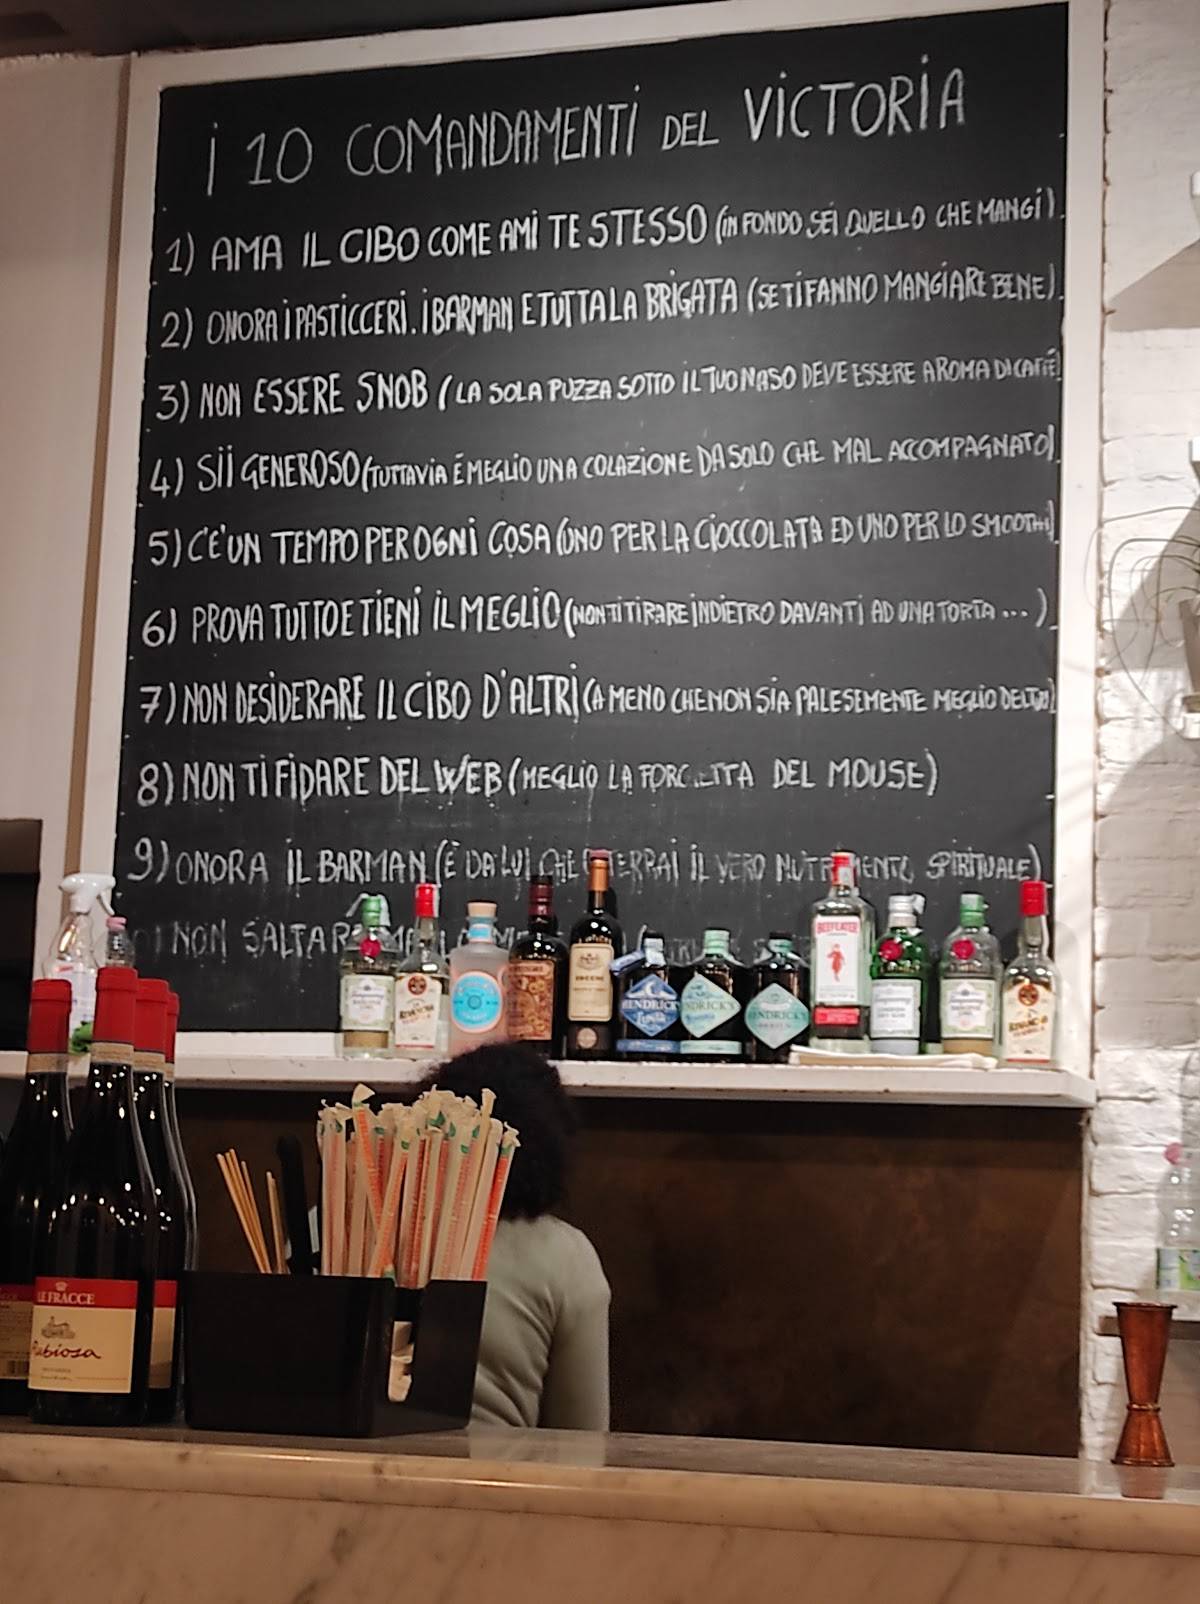 i 10 COMANDAMENTi DEL ViCTORiA
1) AMA IL CIBO COME AMi TE STESSO (iN FONDO SEi QUELLO CHE MANGi)
2) ONORA i PASTiCCERi. i BARMAN E TUTTA LA BRiGATA (SE Ti FANNO MANGiARE BENE)
3) NON ESSERE SNOB (LA SOLA PUZZA SOTTO iL TUO NASO DEVE ESSERE AROMA Di CAFFÉ)
4) Sii GENEROSO (TUTTAViA É MEGLiO UNA COLAZiONE DA SOLO CHE MAL ACCOMPAGNATO)
5) C'É UN TEMPO PER OGNi COSA (UNO PER LA CiOCCOLATA ED UNO PER LO SMOOTHi)
6) PROVA TUTTO E TiENi iL MEGLiO (NON Ti TiRARE iNDiETRO DAVANTi AD UNA TORTA ... )
7) NON DESiDERARE iL CiBO D'ALTRi (A MENO CHE NON SiA PALESEMENTE MEGLiO DEL TUO)
8) NON Ti FiDARE DEL WEB (MEGLiO LA FORCHETTA DEL MOUSE)
9) ONORA iL BARMAN (É DA LUi CHE OTTERRAi iL VERO NUTRiMENTO SPiRiTUALE)
NON SALTARE MAi LA
BEEFEATER
HENDRICK'S
HENDRICK'S
HENDRICK'S
LE FRACCE
Rubiosa